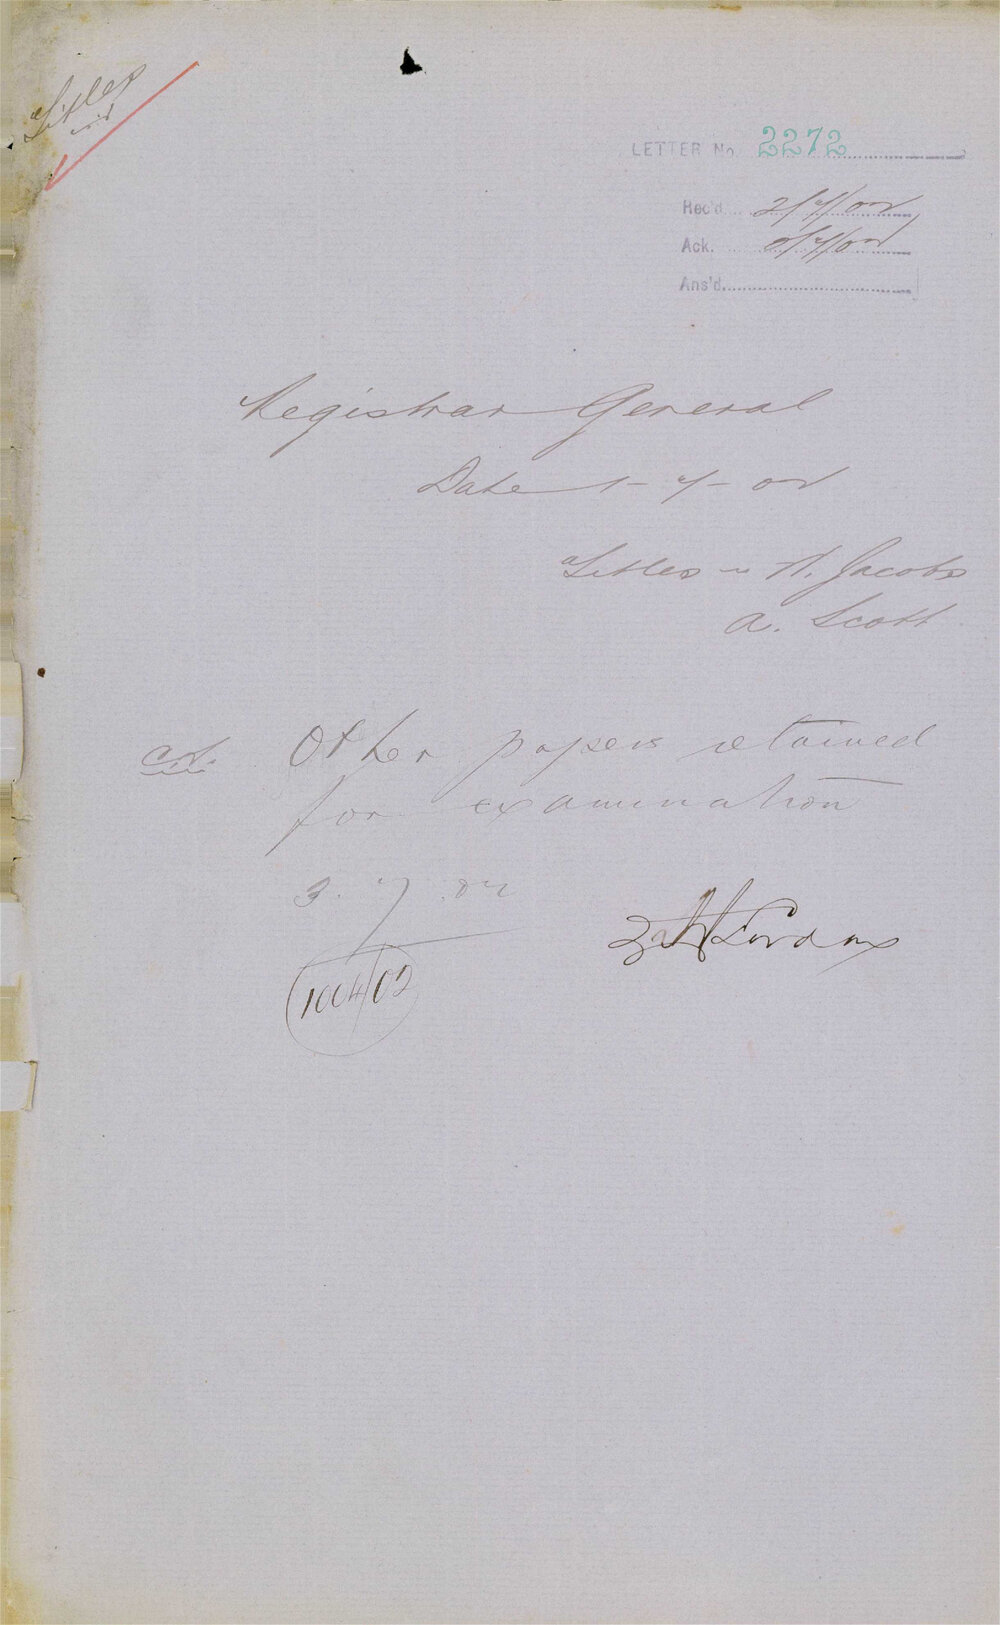 Titles
LETTER No. 2272
Rec'd. 2/7/02
Ack. 2/7/02
Ans'd.
Registrar General
Date 1-7-02
Titles - A. Jacobs
A. Scott
Other papers retained
for examination
3.7.02
1004/02